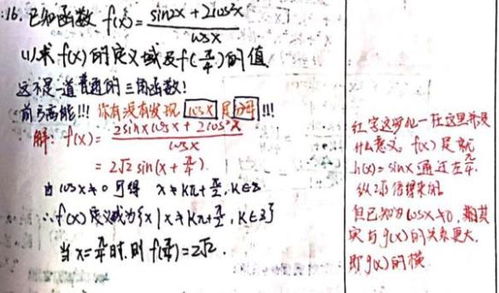 16. 已知函数 f(x) = (sin2x + 2cos²x) / cosx
(1) 求 f(x) 的定义域及 f(π/4) 的值
这不是一道普通的三角函数!
前方高能!!! 你有没有发现 cosx 是分母!!!
解: f(x) = (2sinxcosx + 2cos²x) / cosx
= 2√2 sin(x + π/4).
由 cosx ≠ 0 可得 x ≠ kπ + π/2, k∈Z
∴ f(x) 定义域为 {x | x ≠ kπ + π/2, k∈Z}
当 x = π/4 时, 则 f(π/4) = 2√2.
在这里并没
什么意义. f(x) 是就
h(x) = sinx 通过左 π/4.
纵 2√2 倍得来的
但已知的 cosx ≠ 0,
实与 g(x) 的关系更大.
即 g(x) 的横